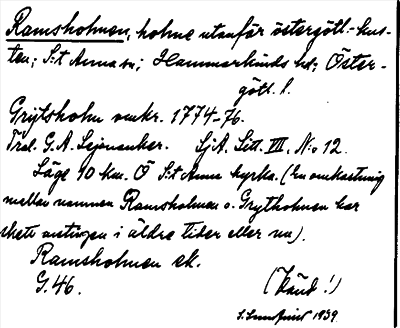 Ramsholmen, holme utanför östergötl.-kus-
ten; S:t Anna sn; Hammarkinds hd; Öster-
götl. l.
Grytsholm omkr. 1774-76.
Tral. G. A. Lejonanker. SjA. Litt. VII. No 12.
Läge 10 km. Ö S:t Anna kyrka. (En omkastning
mellan namnen Ramsholmen o. Grytholmen har
skett antingen i äldre tider eller nu).
Ramsholmen ek.
G. 46. (Känd!)
1939